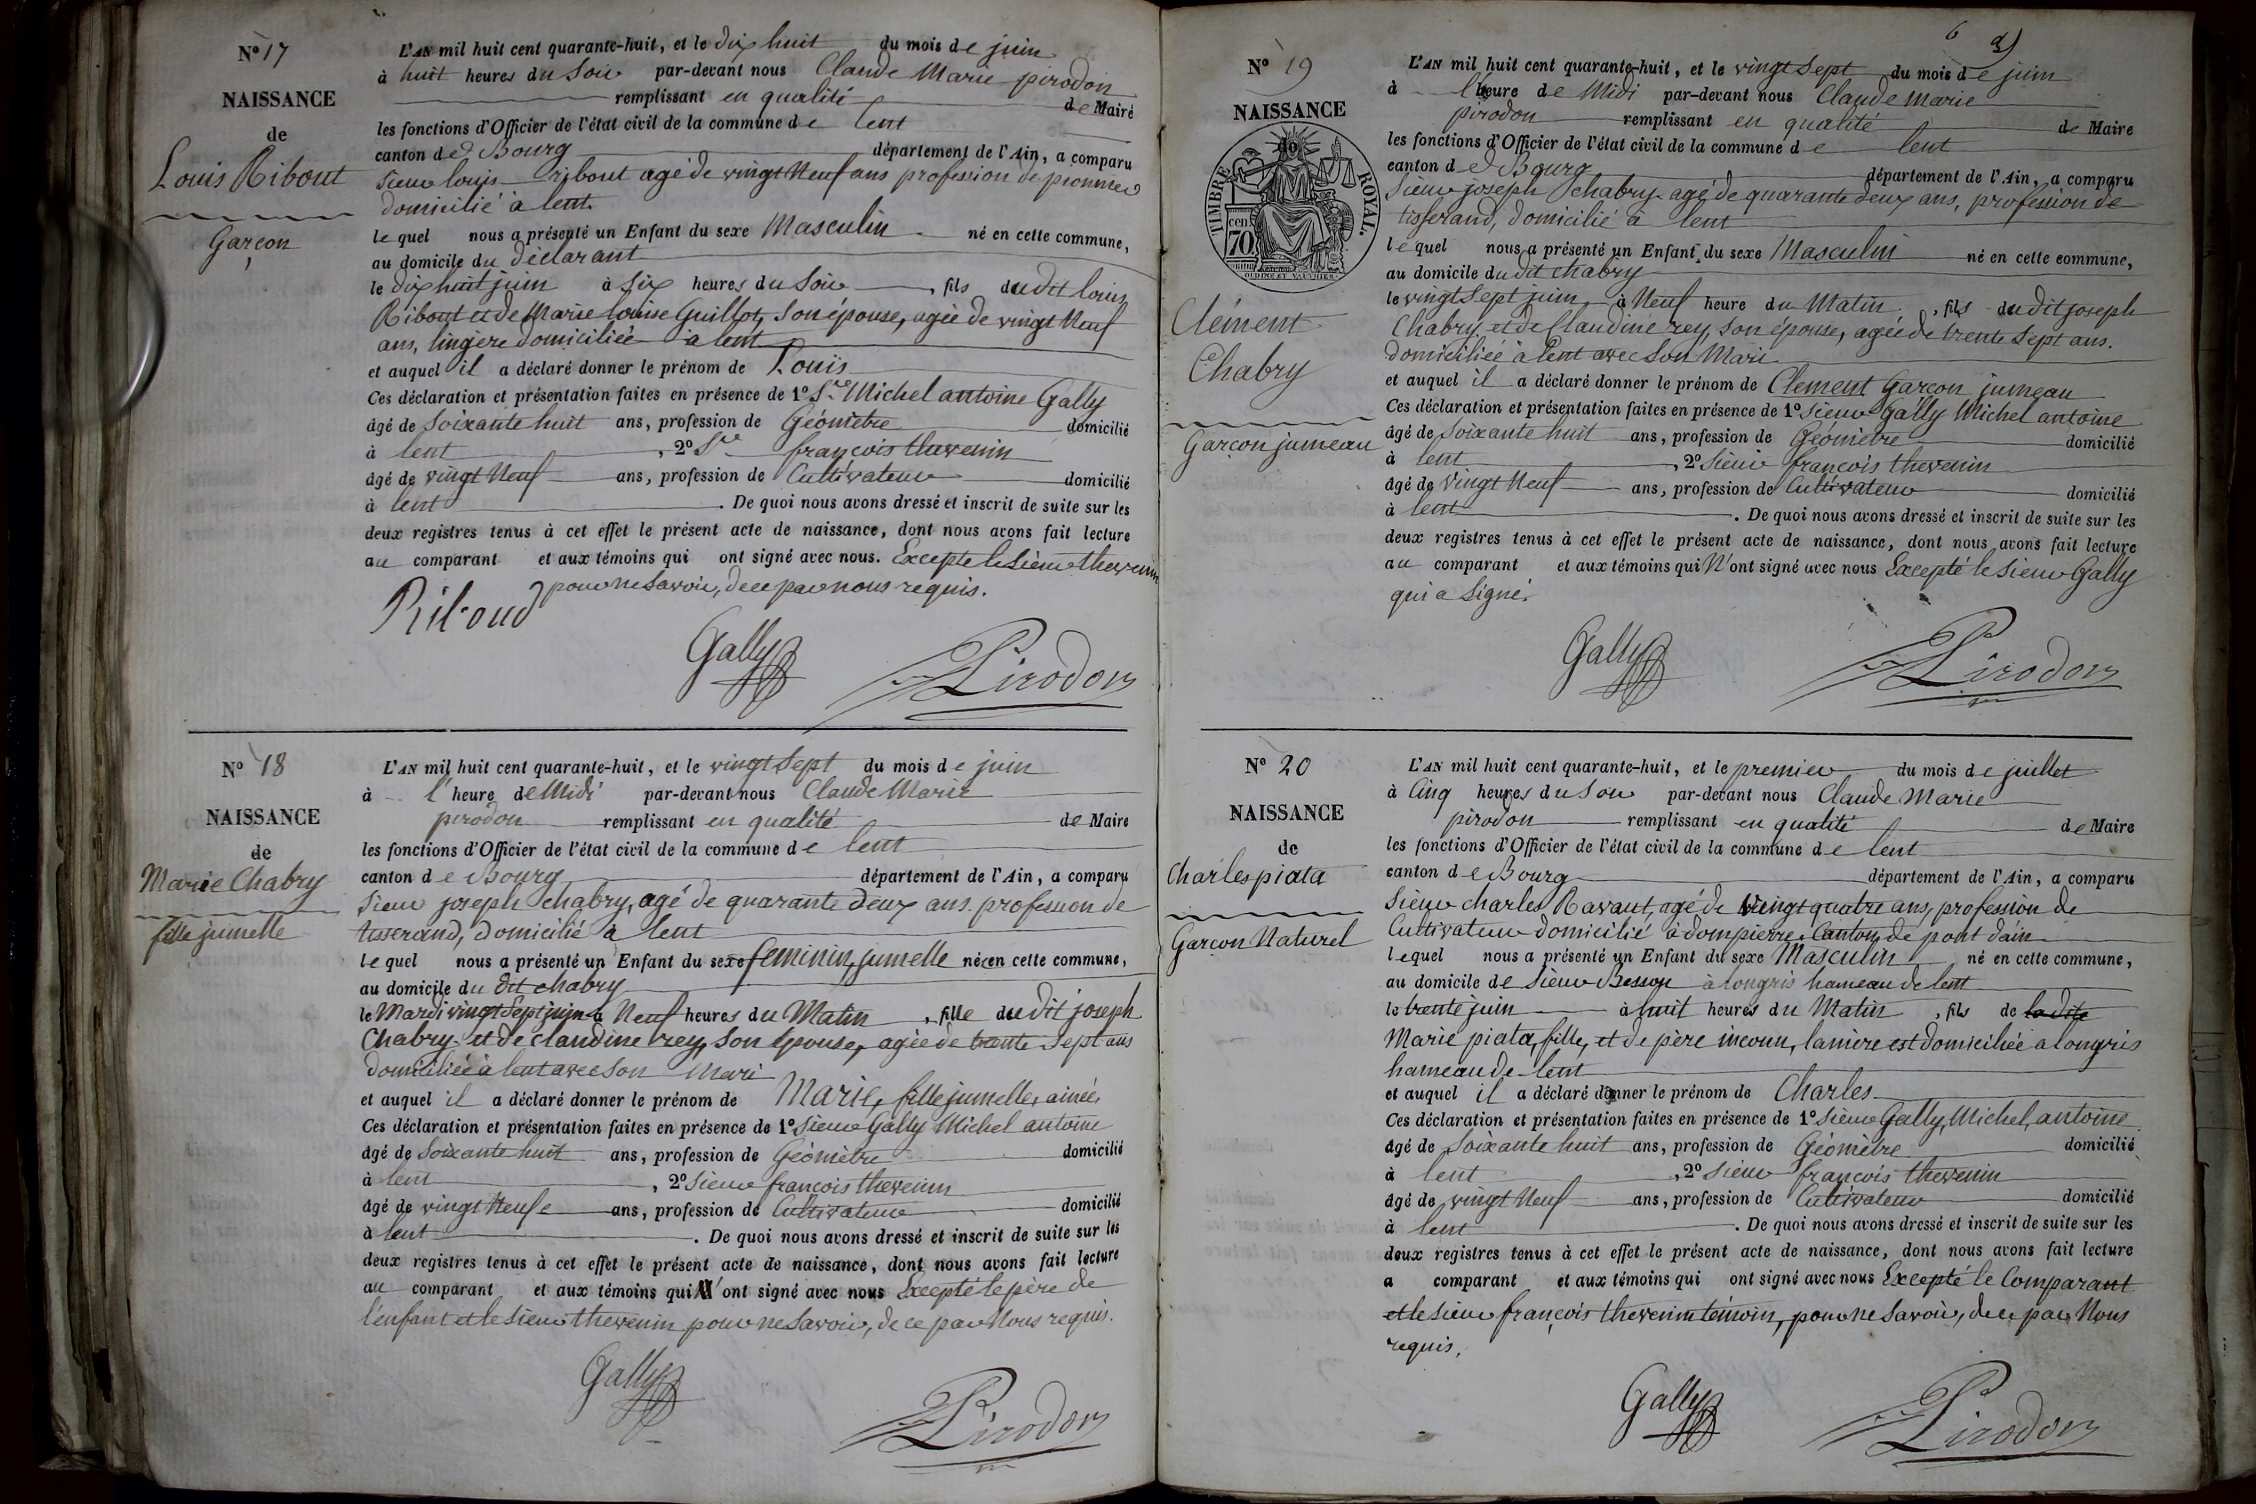 Nº 17
NAISSANCE
de
Louis Ribout
Garçon
L'AN mil huit cent quarante-huit, et le dix huit du mois de juin
à huit heures du soir par-devant nous Claude Marie pirodon
remplissant en qualité de Maire
les fonctions d'Officier de l'état civil de la commune de lent
canton de Bourg département de l'Ain, a comparu
Sieur louis ribout agé de vingt Neuf ans profession de pionnier
domicilié à lent.
le quel nous a présenté un Enfant du sexe Masculin né en cette commune,
au domicile du déclarant
le dix huit juin à six heures du soir, fils dudit louis
Ribout et de Marie louise Guillot, son épouse, agée de vingt Neuf
ans, lingère domiciliée à lent
et auquel il a déclaré donner le prénom de Louis
Ces déclaration et présentation faites en présence de 1º Sr Michel antoine Gally
âgé de soixante huit ans, profession de Géomètre domicilié
à lent, 2º Sr françois thevenin
âgé de vingt Neuf ans, profession de Cultivateur domicilié
à lent. De quoi nous avons dressé et inscrit de suite sur les
deux registres tenus à cet effet le présent acte de naissance, dont nous avons fait lecture
au comparant et aux témoins qui ont signé avec nous. Excepté le sieur thevenin
pour ne savoir, de ce par nous requis.
Riboud
Gally
Pirodon
Nº 18
NAISSANCE
de
Marie Chabry
fille jumelle
L'AN mil huit cent quarante-huit, et le vingt sept du mois de juin
à l'heure de Midi par-devant nous Claude Marie
pirodon remplissant en qualité de Maire
les fonctions d'Officier de l'état civil de la commune de lent
canton de Bourg département de l'Ain, a comparu
Sieur joseph chabry, agé de quarante deux ans. profession de
tisserand, domicilié à lent
le quel nous a présenté un Enfant du sexe feminin, jumelle née en cette commune,
au domicile du dit chabry
le Mardi vingt sept juin à Neuf heures du Matin, fille du dit joseph
Chabry et de claudine rey, son épouse, agée de trente sept ans
domiciliée à lent avec son Mari
et auquel il a déclaré donner le prénom de Marie, fille jumelle, ainée,
Ces déclaration et présentation faites en présence de 1º Sieur Gally Michel antoine
âgé de soixante huit ans, profession de Géomètre domicilié
à lent, 2º Sieur françois thevenin
âgé de vingt Neufe ans, profession de Cultivateur domicilié
à lent. De quoi nous avons dressé et inscrit de suite sur les
deux registres tenus à cet effet le présent acte de naissance, dont nous avons fait lecture
au comparant et aux témoins qui N'ont signé avec nous Excepté le père de
l'enfant et le sieur thevenin pour ne savoir, de ce par Nous requis.
Gally
Pirodon
6
Nº 19
NAISSANCE
de
TIMBRE ROYAL.
70
Clément
Chabry
Garçon jumeau
L'AN mil huit cent quarante-huit, et le vingt sept du mois de juin
à l'heure de Midi par-devant nous Claude Marie
pirodon remplissant en qualité de Maire
les fonctions d'Officier de l'état civil de la commune de lent
canton de Bourg département de l'Ain, a comparu
Sieur joseph chabry agé de quarante deux ans, profession de
tisserand, domicilié à lent
le quel nous a présenté un Enfant du sexe Masculin né en cette commune,
au domicile du dit chabry
le vingt sept juin, à Neuf heure du Matin, fils du dit joseph
Chabry et de Claudine rey, son épouse, agée de trente sept ans.
domiciliée à lent avec son Mari
et auquel il a déclaré donner le prénom de Clement Garçon jumeau
Ces déclaration et présentation faites en présence de 1º sieur Gally Michel antoine
âgé de soixante huit ans, profession de Géomètre domicilié
à lent, 2º Sieur françois thevenin
âgé de vingt Neuf ans, profession de Cultivateur domicilié
à lent. De quoi nous avons dressé et inscrit de suite sur les
deux registres tenus à cet effet le présent acte de naissance, dont nous avons fait lecture
au comparant et aux témoins qui N'ont signé avec nous Excepté le sieur Gally
qui a signé.
Gally
Pirodon
Nº 20
NAISSANCE
de
Charles piata
Garçon Naturel
L'AN mil huit cent quarante-huit, et le premier du mois de juillet
à Cinq heures du soir par-devant nous Claude Marie
pirodon remplissant en qualité de Maire
les fonctions d'Officier de l'état civil de la commune de lent
canton de Bourg département de l'Ain, a comparu
Sieur charles Ravaut, agé de vingt quatre ans, profession de
Cultivateur domicilié à dompierre, Canton de pont dain
lequel nous a présenté un Enfant du sexe Masculin né en cette commune,
au domicile de sieur Besson à longris hameau de lent
le trente juin à huit heures du Matin, fils de la dite
Marie piata, fille, et de père inconu, la mère est domiciliée a longris
hameau de lent
et auquel il a déclaré donner le prénom de Charles
Ces déclaration et présentation faites en présence de 1º Sieur Gally, Michel, antoine
âgé de soixante huit ans, profession de Géomètre domicilié
à lent, 2º sieur françois thevenin
âgé de vingt Neuf ans, profession de Cultivateur domicilié
à lent. De quoi nous avons dressé et inscrit de suite sur les
deux registres tenus à cet effet le présent acte de naissance, dont nous avons fait lecture
a comparant et aux témoins qui ont signé avec nous Excepté le Comparant
et le sieur françois thevenin témoin, pour ne savoir, de ce par Nous
requis.
Gally
Pirodon